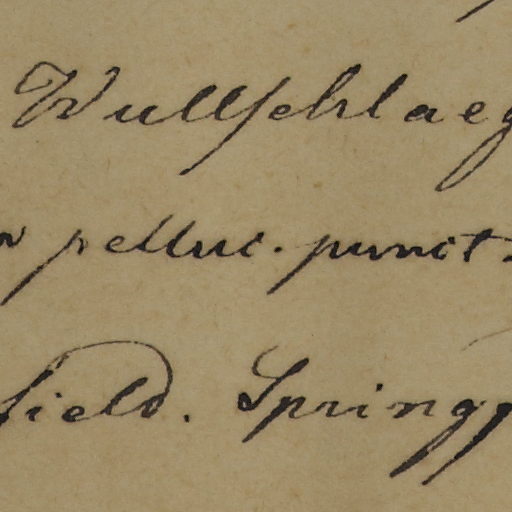 Wullschlaeg
pelluc. punct.
field. Spring